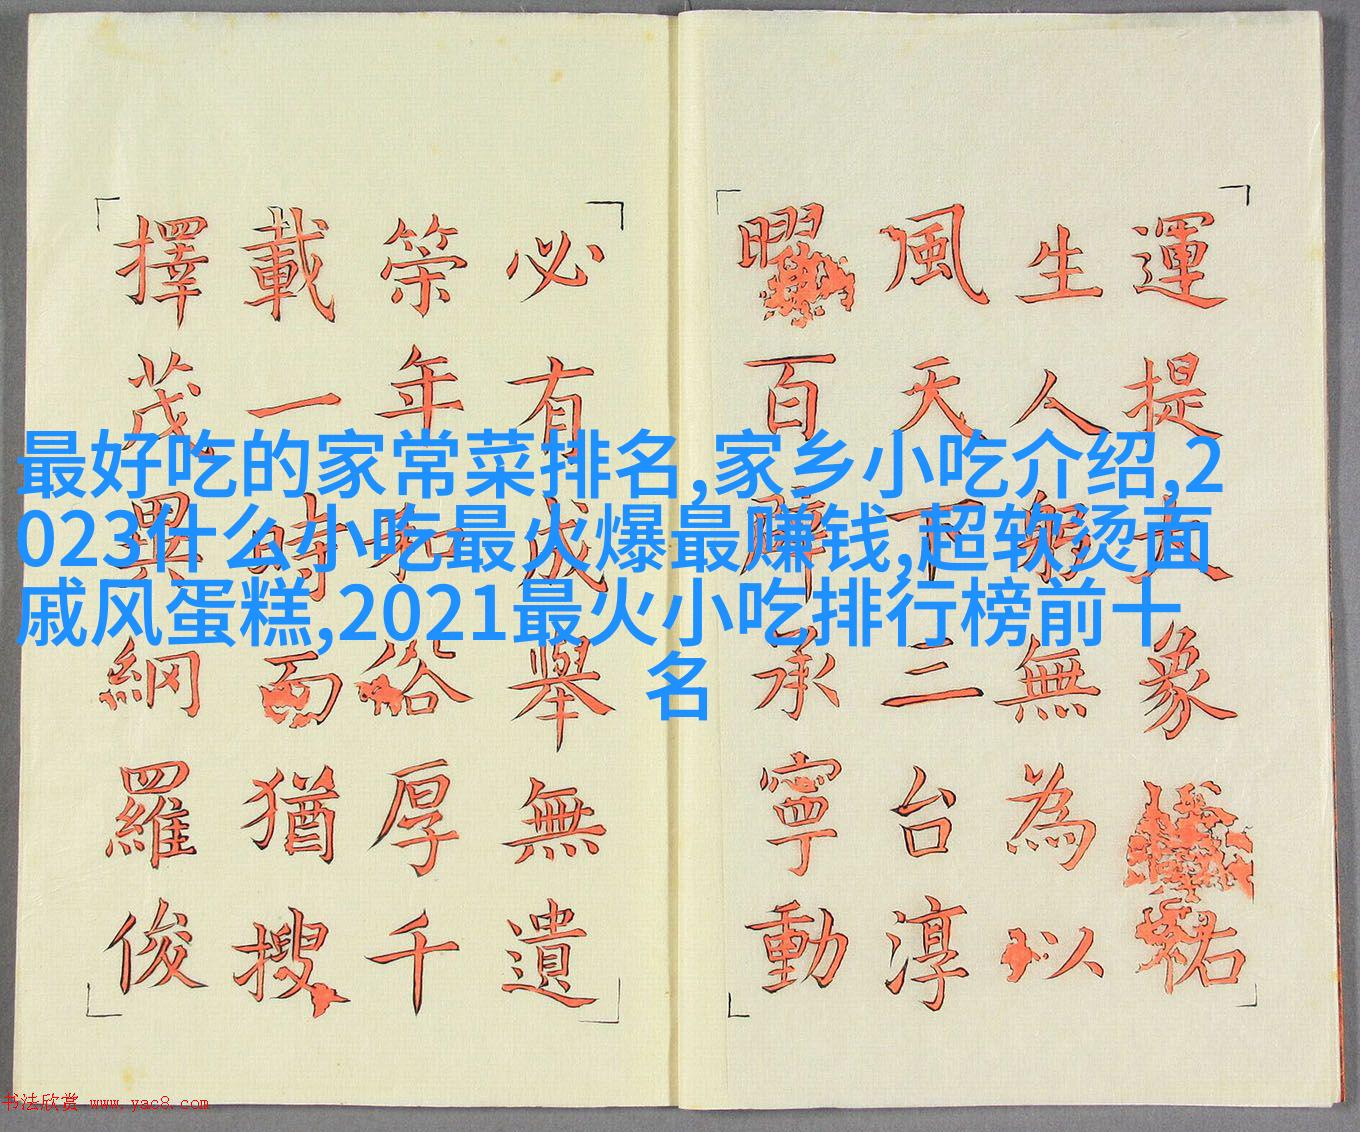 最好吃的家常菜排名,家乡小吃介绍,2
023什么小吃最火爆最赚钱,超软烫面
戚风蛋糕,2021最火小吃排行榜前十
名
運提大象祐
生人躬無為以
風天下三台淳
曜百辟承寧動
必有成舉無遺
筞年和俗厚千
載一時而猶搜
擇茂異網羅俊
书法欣赏 www.yac8.com